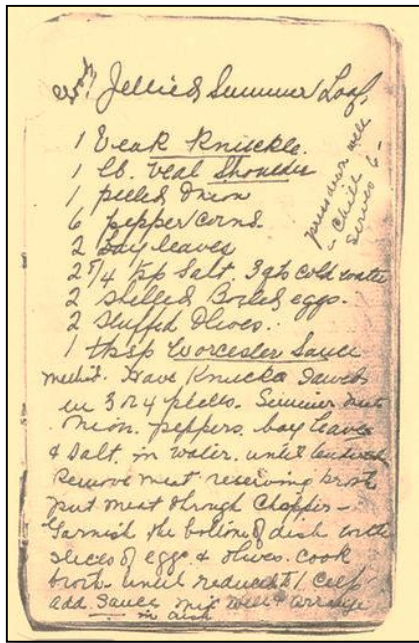 Good! Jellied Summer Loaf.
1 Veal Knuckle.
1 lb. Veal Shoulder
1 pelled Onion
6 pepper corns.
2 Bay leaves
2 /4 tsp Salt. 3 qts cold water
2 shelled Boiled eggs.
2 stuffed Olives.
1 tbsp Worcester Sauce
press down well
- Chill -
serves 6 -
method. Have Knuckle sawed
in 3 or 4 pieces. Simmer meat
onion. peppers. bay leaves
& Salt. in water. until tender
Remove meat reserving broth
put meat through Chopper -
Garnish the bottom of dish with
slices of eggs & olives. Cook
broth until reduced to 1 Cup
add Sauce mix well & arrange
in dish